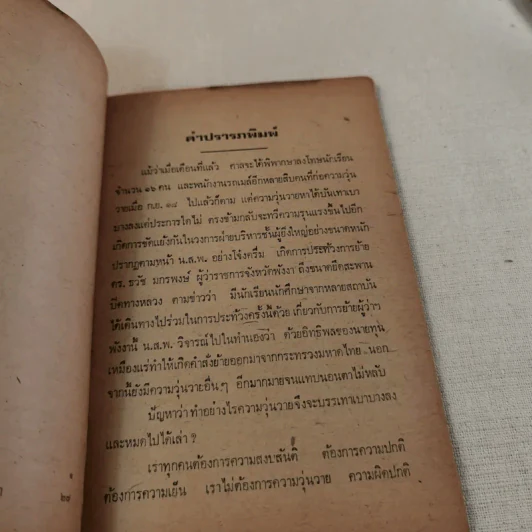 คำปรารภพิมพ์
แม้ว่าเมื่อเดือนที่แล้ว ศาลจะได้พิพากษาลงโทษนักเรียน
จำนวน ๑๖ คน และพนักงานรถเมล์อีกหลายสิบคนที่ก่อความวุ่น
วายเมื่อ ก.ย. ๑๘ ไปแล้วก็ตาม แต่ความวุ่นวายหาได้บันเทาเบา
บางลงแต่ประการใดไม่ ตรงข้ามกลับจะทวีความรุนแรงขึ้นไปอีก
เกิดการขัดแย้งกันในวงการฝ่ายบริหารชั้นผู้ยิ่งใหญ่อย่างขนาดหนัก
ปรากฏตามหน้า น.ส.พ. อย่างโจ๋งครึ่ม เกิดการประท้วงการย้าย
ดร. ธวัช มกรพงษ์ ผู้ว่าราชการจังหวัดพังงา ถึงขนาดยึดสะพาน
ปิดทางหลวง ตามข่าวว่า มีนักเรียนนักศึกษาจากหลายสถาบัน
ได้เดินทางไปร่วมในการประท้วงครั้งนี้ด้วย เกี่ยวกับการย้ายผู้ว่าฯ
พังงานี้ น.ส.พ. วิจารณ์ไปในทำนองว่า ด้วยอิทธิพลของนายทุน
เหมืองแร่ทำให้เกิดคำสั่งย้ายออกมาจากกระทรวงมหาดไทย นอก
จากนี้ยังมีความวุ่นวายอื่นๆ อีกมากมายจนแทบนอนตาไม่หลับ
ปัญหาว่า ทำอย่างไรความวุ่นวายจึงจะบรรเทาเบาบางลง
และหมดไปได้เล่า ?
เราทุกคนต้องการความสงบสันติ ต้องการความปกติ
ต้องการความเย็น เราไม่ต้องการความวุ่นวาย ความผิดปกติ